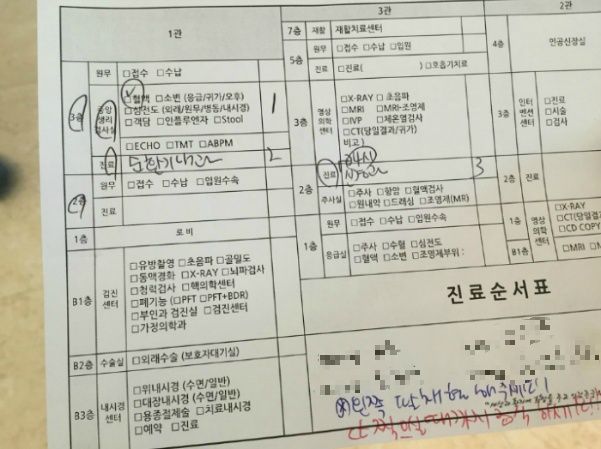 1관
원무 □접수 □수납
3층 중앙생리검사실
□혈액 □소변 (응급/귀가/오후)
□심전도 (외래/원무/병동/내시경)
□객담 □인플루엔자 □Stool
1
□ECHO □TMT □ABPM
진료 순환기내과 2
2층
원무 □접수 □수납 □입원수속
진료
1층 로비
B1층 검진센터
□유방촬영 □초음파 □골밀도
□동맥경화 □X-RAY □뇌파검사
□청력검사 □핵의학센터
□폐기능 (□PFT □PFT+BDR)
□부인과 검진실 □검진센터
□가정의학과
B2층 수술실 □외래수술 (보호자대기실)
B3층 내시경센터
□위내시경 (수면/일반)
□대장내시경 (수면/일반)
□용종절제술 □치료내시경
□예약 □진료
3관
7층 재활 재활치료센터
5층
원무 □접수 □수납 □입원
진료 □진료( ) □호흡기치료
3층 영상의학센터
□X-RAY □초음파
□MRI □MRI-조영제
□IVP □체온열검사
□CT(당일결과/귀가)
비교)
2층
진료 3
주사실 □주사 □항암 □혈액검사
□원내약 □드레싱 □조영제(MR)
1층
원무 □접수 □수납 □입원수속
응급실 □주사 □수혈 □심전도
□혈액 □소변 □조영제부위 :
2관
4층 인공신장실
3층 인터벤션센터
□진료
□시술
□검사
2층 진료
1층 B1층 영상의학센터
□X-RAY
□CT(당일결
□CD COPY
□MRI □M
진료순서표